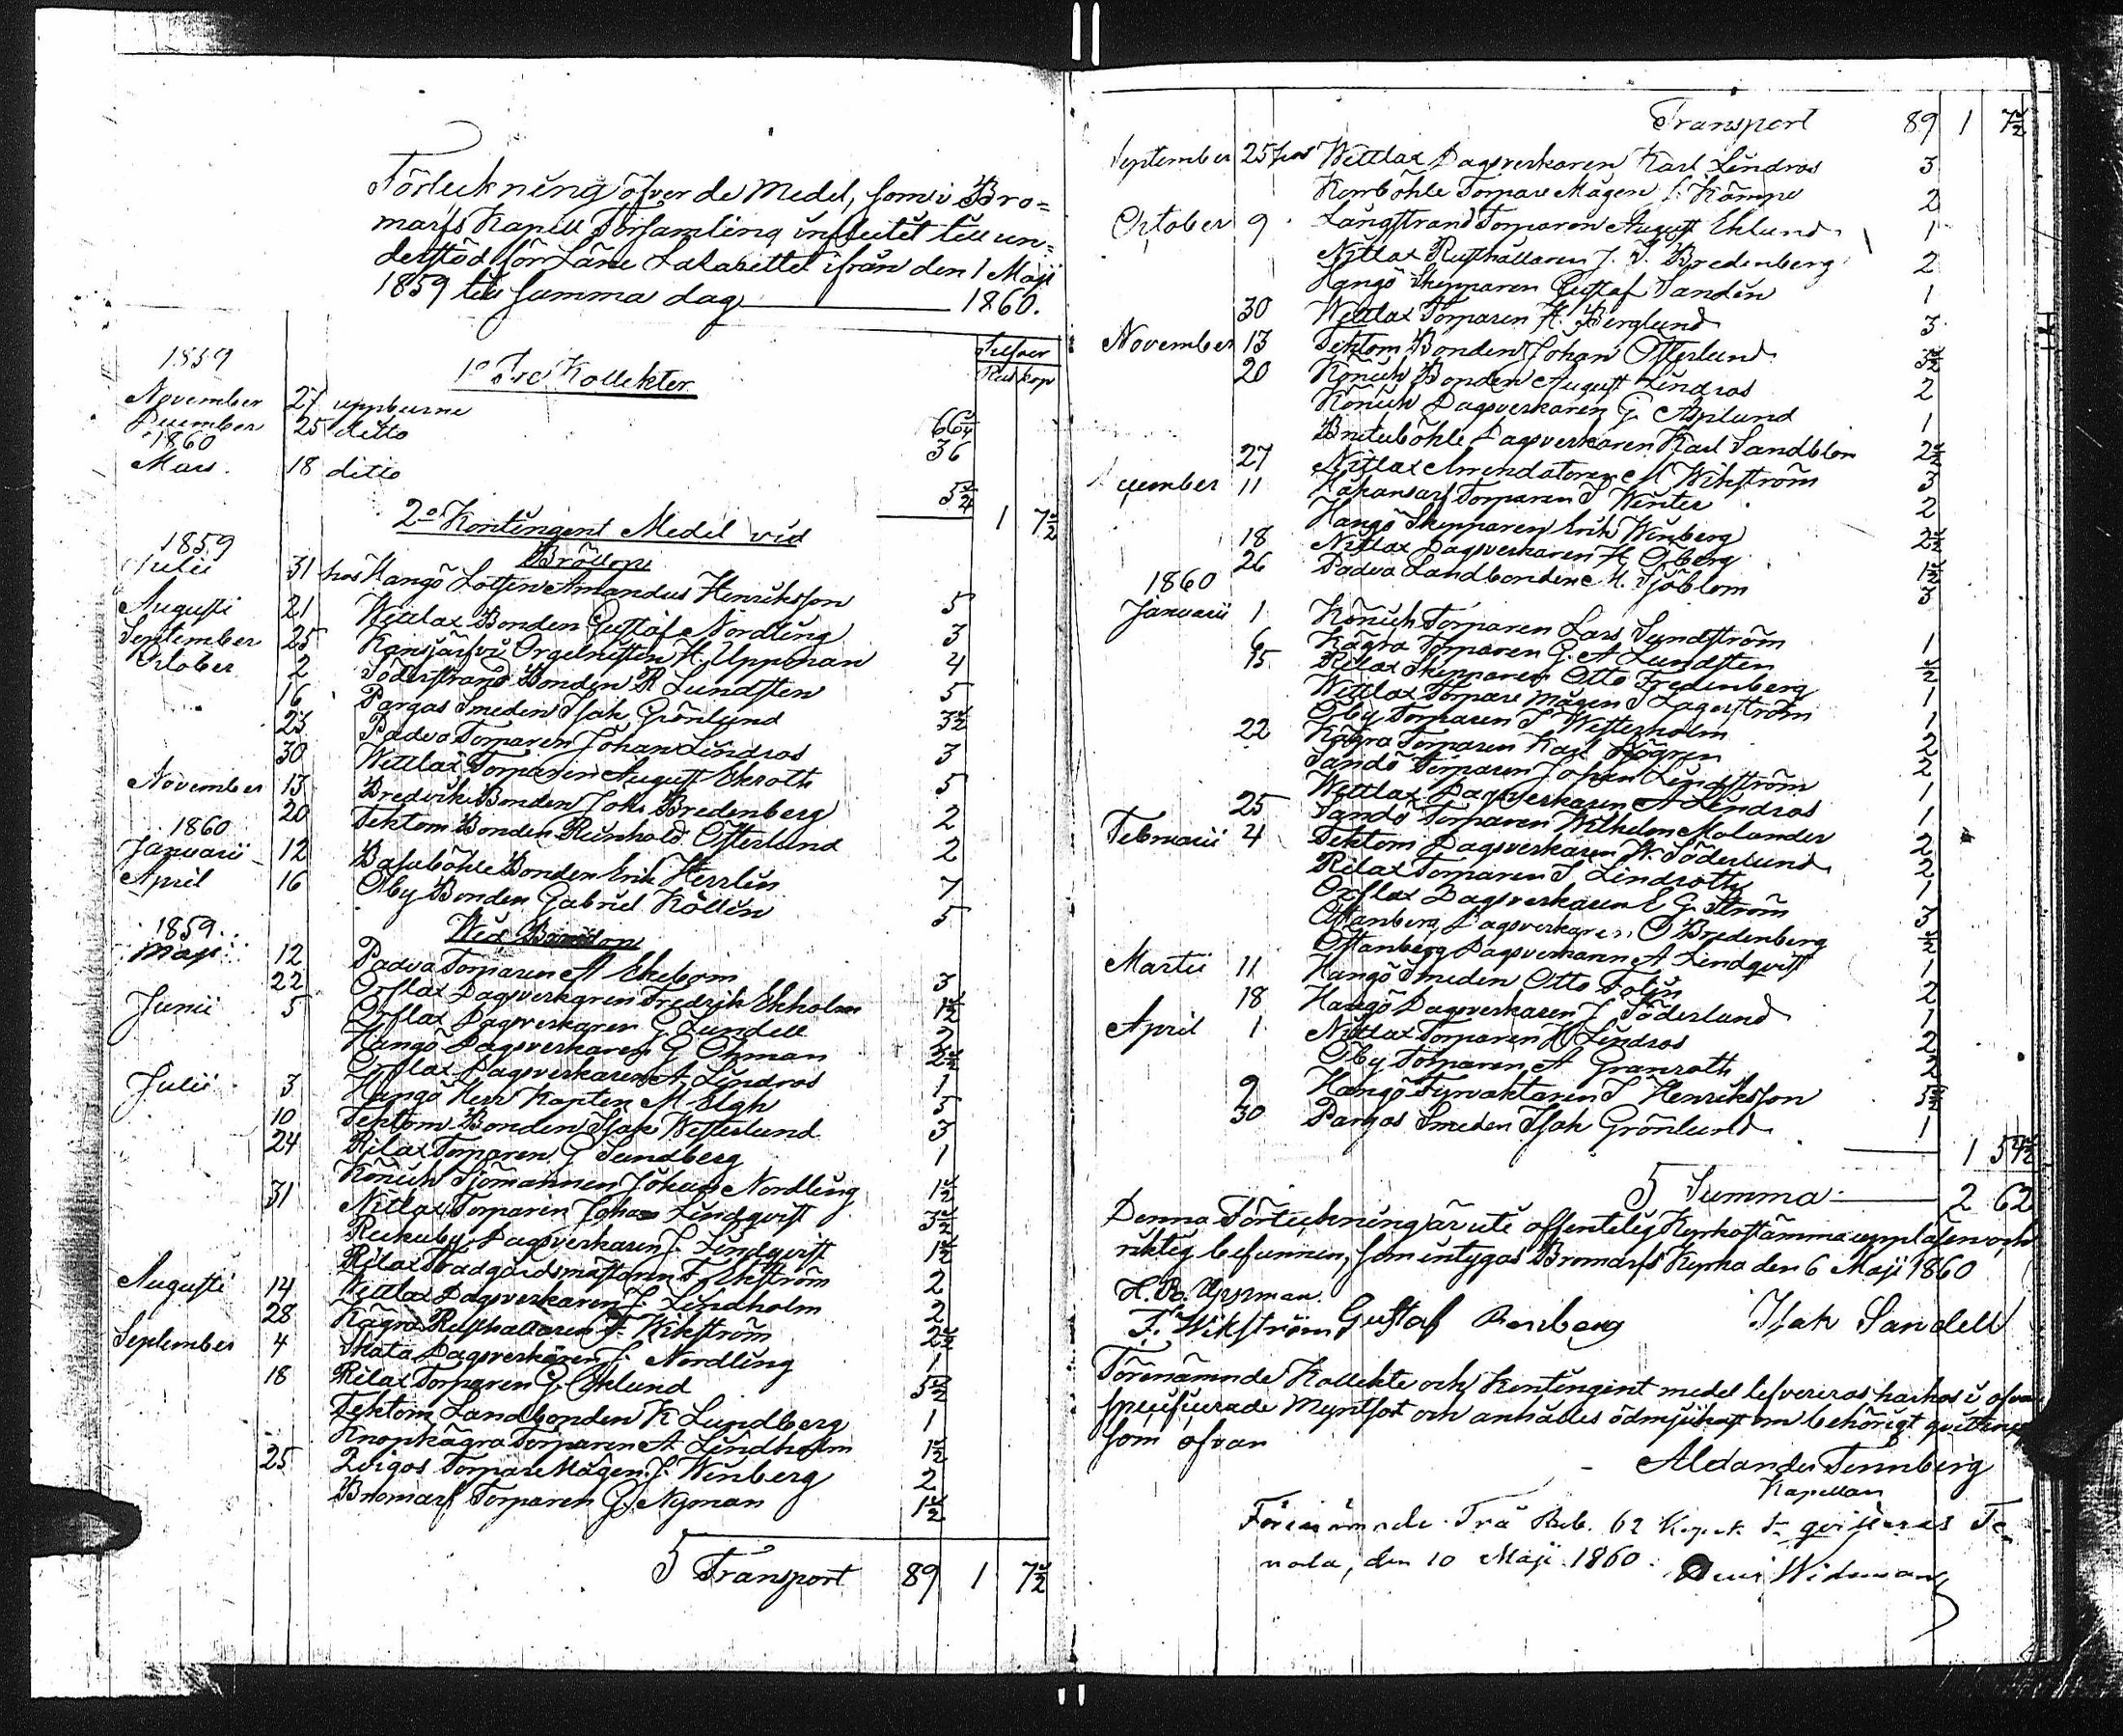 Förteckning öfver de Medel, som i Bro=
marfs Kapell Församling influtit till un=
derstöd för Läne Lazarettet ifrån den 1 Maji
1859 till samma dag 1860.
Silfver
Rub kop
1859
1o Tre Kollekter
November 27 uppburne 66 3/4
December 25 ditto 36
1860
Mars 18 ditto 5 3/4 1 7 1/2
2o Kontingent Medel vid
Bröllop
1859
Julii 31 hos Hangö Lotsen Amandus Henriksson 5
Augusti 21 Wettlax Bonden Gustaf Nordling 3
September 25 Kansjärfvi Orgelnisten H. Uppman 4
October 2 Söderstrand Bonden R Lundsten 5
16 Pargas Smeden Isak Grönlund 3 1/2
23 Padva Torparen Johan Lindros 3
30 Wettlax Torparen August Ekroth 5
November 13 Bredvik Bonden Joh. Bredenberg 2
20 Tektom Bonden Reinhold Österlund 2
1860
Januarii 12 Basaböhle Bonden Erik Herrlin 7
April 16 Öby Bonden Gabriel Köllin 5
1859
Wid
Maji 12 Padva Torparen M Ekebom 3
22 Orslax Dagsverkaren Fredrik Ekholm 1 1/2
Junii 5 Orslax Dagsverkaren G Lundell 2
Hangö Dagsverkaren G Öhman 2 1/2
Orslax Dagsverkaren A Lindros 1
Julii 3 Hangö Herr Kapten M Elgh 5
10 Tektom Bonden Isak Westerlund 3
24 Rilax Torparen G Sundberg 1
Könich Sjömannen Johan Nordling 1 1/2
31 Nitlax Torparen Johan Lindqvist 3 1/2
Reckuby Dagsverkaren J. Lindqvist 1 1/2
Rilax Trädgårdsmästaren F. Ekström 2
Augusti 14 Wettlax Dagsverkaren J. Lindholm 2
28 Kägra Rusthållaren F. Wikström 2 1/2
September 4 Skata Dagsverkaren J. Nordling 1
18 Rilax Torparen G. Öhlund 5 1/2
Tektom Landbonden K Lundberg 1
Knopkägra Torparen A Lindholm 1 1/2
25 Zvigos Torpare Mågen J. Winberg 2
Bromarf Torparen G. Nyman 1 1/2
S Transport 89 1 7 1/2
Transport 89 1 7 1/2
September 25 hos Wättlax Dagsverkaren Karl Lindros 3
Korrböhle Torpare Mågen J. Kämpe 2
October 9 Långstrand Torparen August Eklund 1
Nitlax Rusthållaren J. F. Bredenberg 2
Hangö Skepparen Gustaf Sanden 1
30 Wettlax Torparen H. Berglund 3
November 13 Tektom Bonden Johan Österlund 3 1/2
20 Könich Bonden August Lindros 2
Könich Dagsverkaren G. Asplund 1
Bruteböhle Dagsverkaren Karl Sandblom 2 1/2
27 Nitlax Arrendatoren M Wikström 3
December 11 Håkansarf Torparen S Winter 2
Hangö Skepparen Erik Winberg 2 1/2
18 Nitlax Dagsverkaren H Öberg 1 1/2
26 Padva Landbonden M. Sjöblom 3
1860
Januarii 1 Könich Torparen Lars Sundström 1
6 Kägra Torparen G. A Lundsten 1/2
15 Rilax Skepparen Otto Fredenberg 1
Wettlax Torpare mågen S Lagerström 1
Öby Torparen S Westerholm 2
22 Kägra Torparen Karl Högren 2
Sandö Torparen Johan Lindström 1
Wettlax Dagsverkaren A Lindros 1
25 Sandö Torparen Wilhelm Malander 2
Februarii 4 Tektom Dagsverkaren W. Söderlund 2
Rilax Torparen S. Lindroth 1
Orslax Dagsverkaren E G. Ström 3
Östanberg Dagsverkaren O Bredenberg 1/2
Östanberg Dagsverkaren A Lindqvist 1
Martii 11 Hangö Smeden Otto Tolin 2
18 Hangö Dagsverkaren J. Söderlund 1
April 1 Nitlax Torparen H Lindros 2
Öby Torparen A Granroth 2
9 Hangö Fyrvaktaren S Henriksson 5 1/2
30 Pargas Smeden Isak Grönlund 1
1 54 1/2
S Summa 2 62
Denna Förteckning är uti offentelig Kyrkostämma uppläsen och
riktig befunnen, som intygas Bromarfs Kyrka den 6 Maji 1860
H. Uppman.
F. Wikström Gustaf Renberg Isak Sandell
Förenämnde Kollekte och Kontingent medel lefvereras härhos i ofvan
specificerade Myntsort och anhålles ödmjukast om behörigt
som ofvan
Alexander Tennberg
Kapellan
Förenämnde Två Rub. 62 Kopek qvitteras Te
nala, den 10 Maji 1860. Wideman